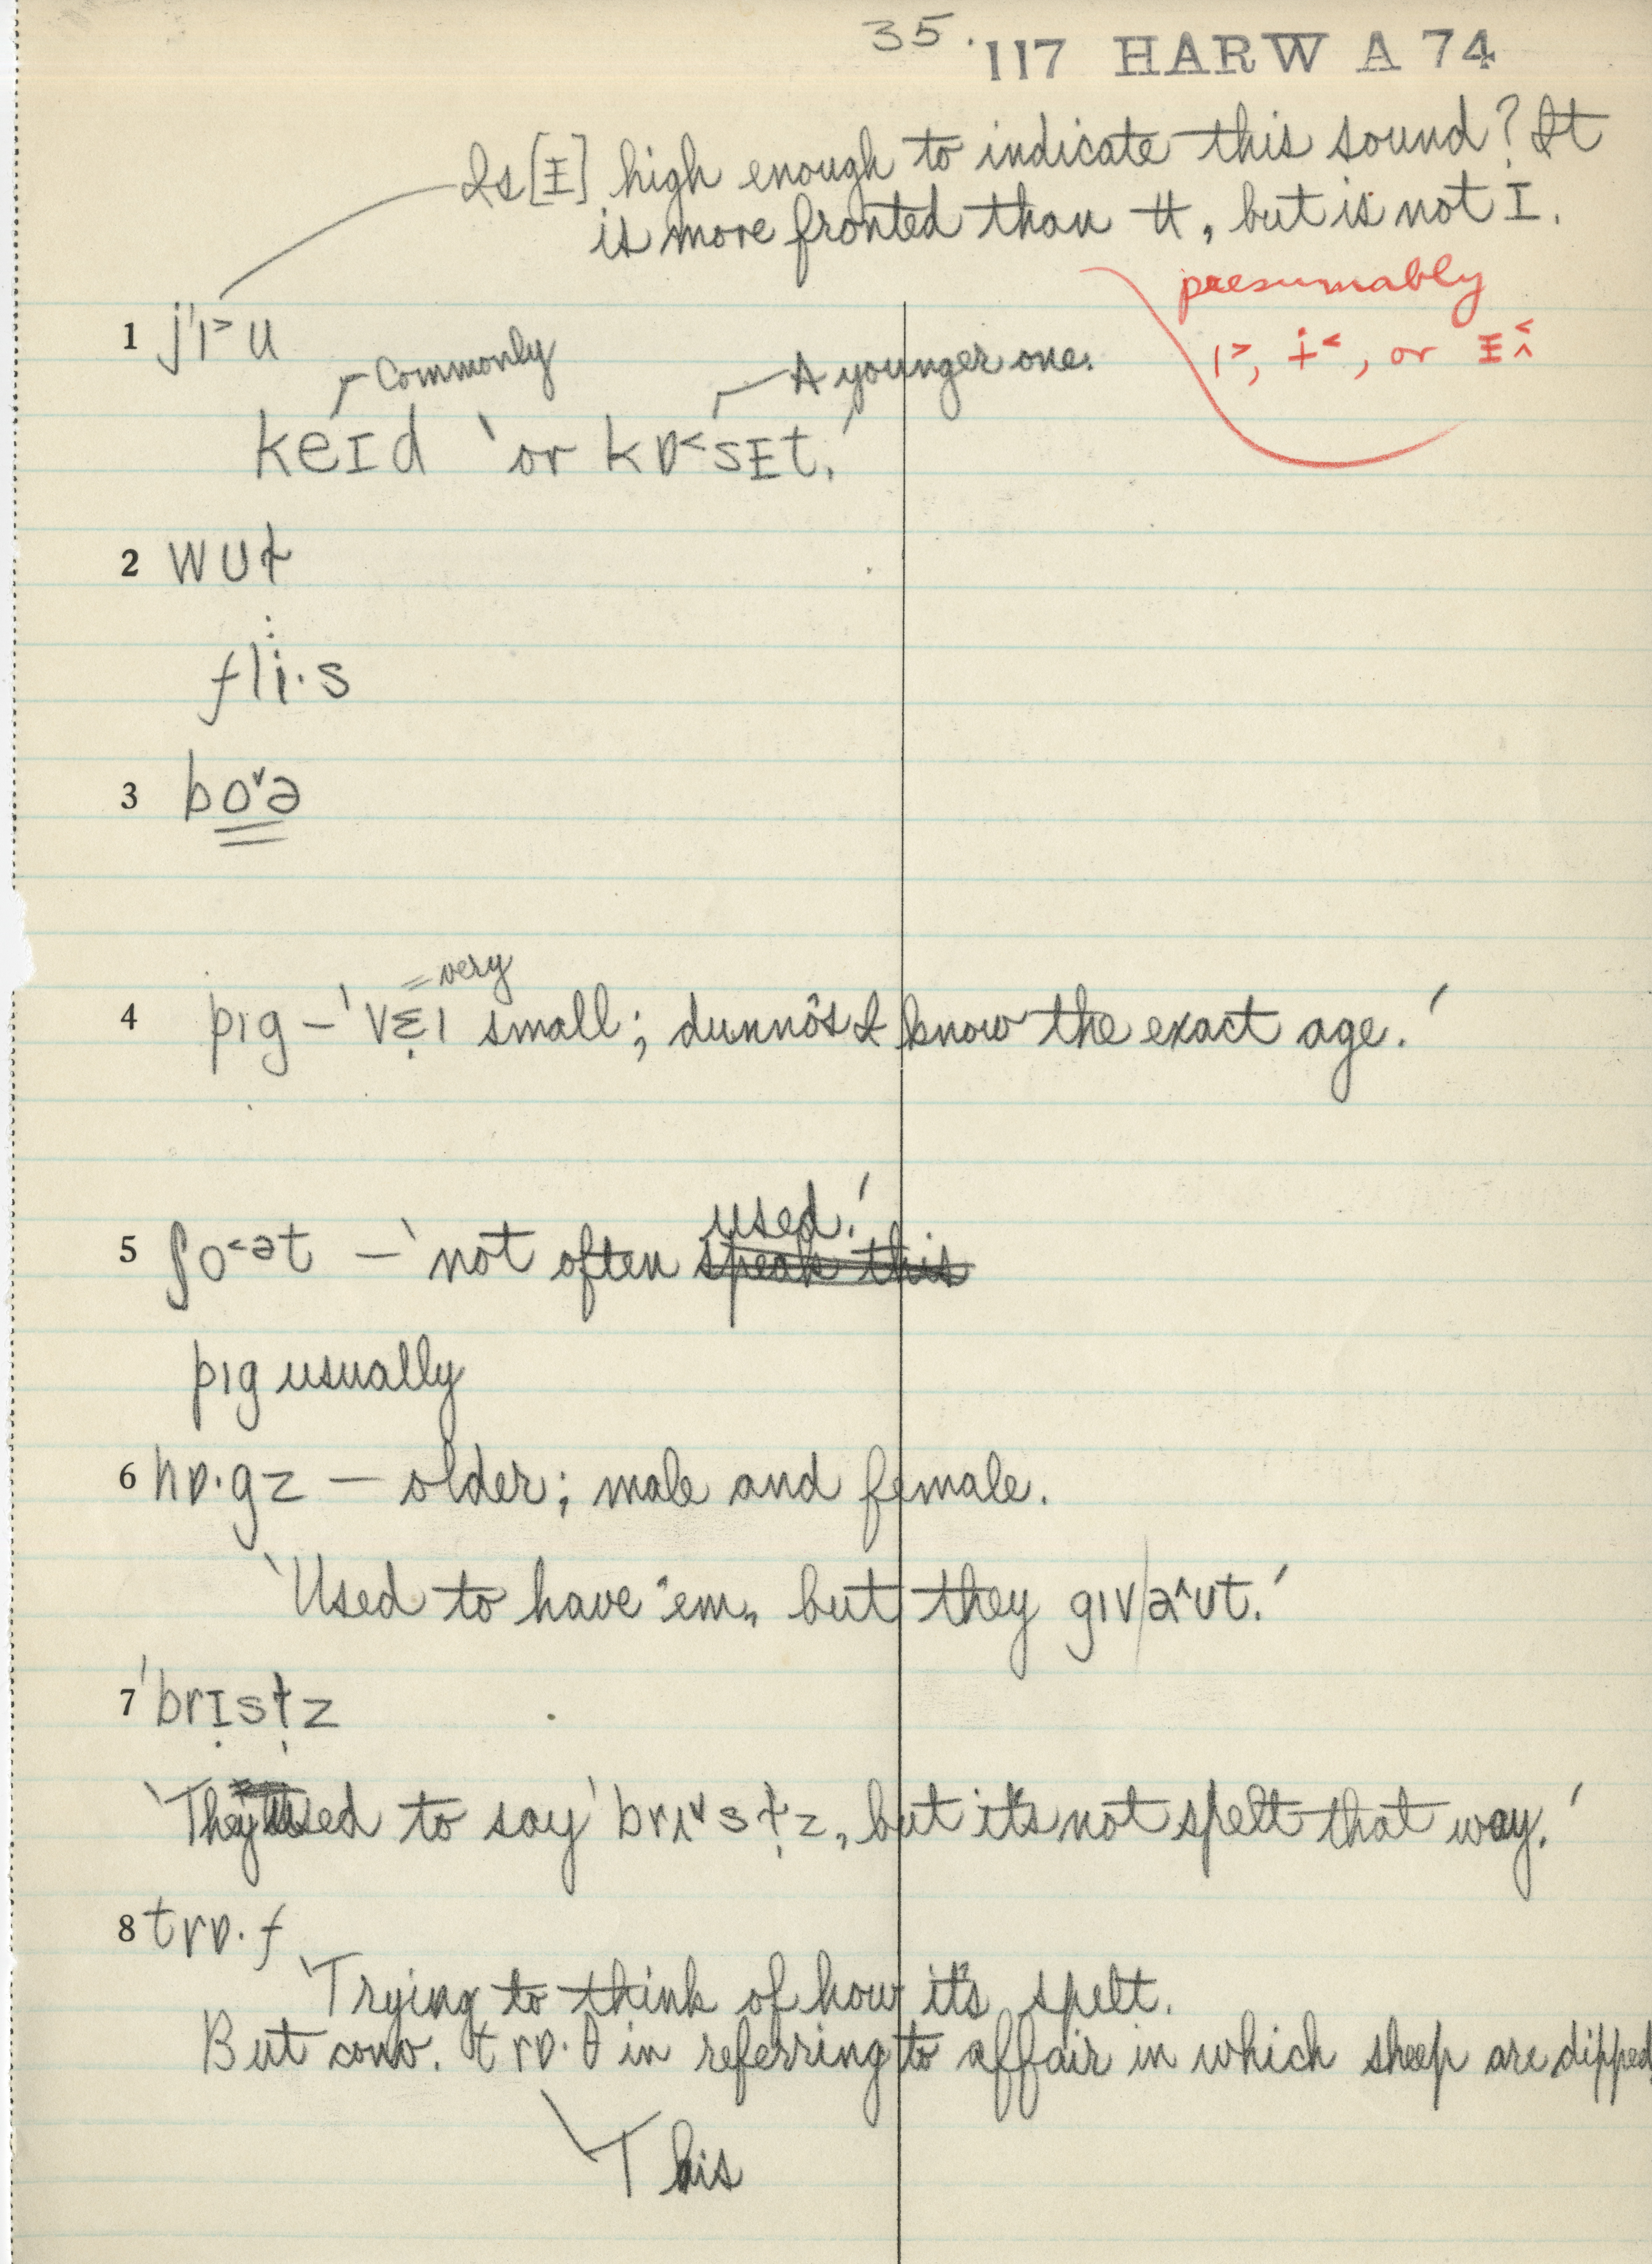 35. 117 HARW A 74
Is [ᵻ] high enough to indicate this sound? It
is more fronted than ʉ, but is not I.
presumably
1 j'i˃u
i˃, ɨ˂, or ᵻ̂˂
Commonly
A younger one.
keɪd 'or kɒ˂sᵻt.'
2 wʊɫ
fli·s
3 bo˅ə
= very
4 pɪg – 'vɛ̣ɪ small; dunno's I know the exact age.'
used.'
5 ʃo˂ət – 'not often speak this
pɪg usually
6 hɒ·gz – older; male and female.
'Used to have 'em, but they gɪv/ə^ʊt.'
7 'brɪ̣sɫ̩z
'They used to say 'brɪ˅sɫ̩z, but it's not spelt that way.'
8 trɒ·f
'Trying to think of how it's spelt.
But conv. trɒ·θ in referring to affair in which sheep are dipped
This